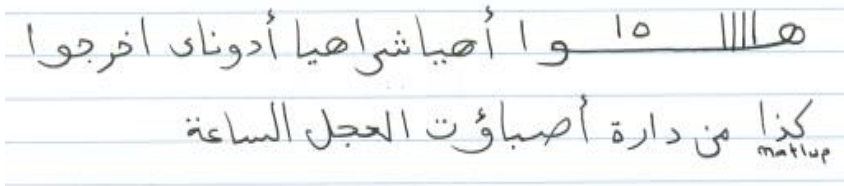 هـااااا ١٥ ـوا أهيا شراهيا أدوناى اخرجوا
كذا من دارة أصباؤت العجل الساعة
matlup